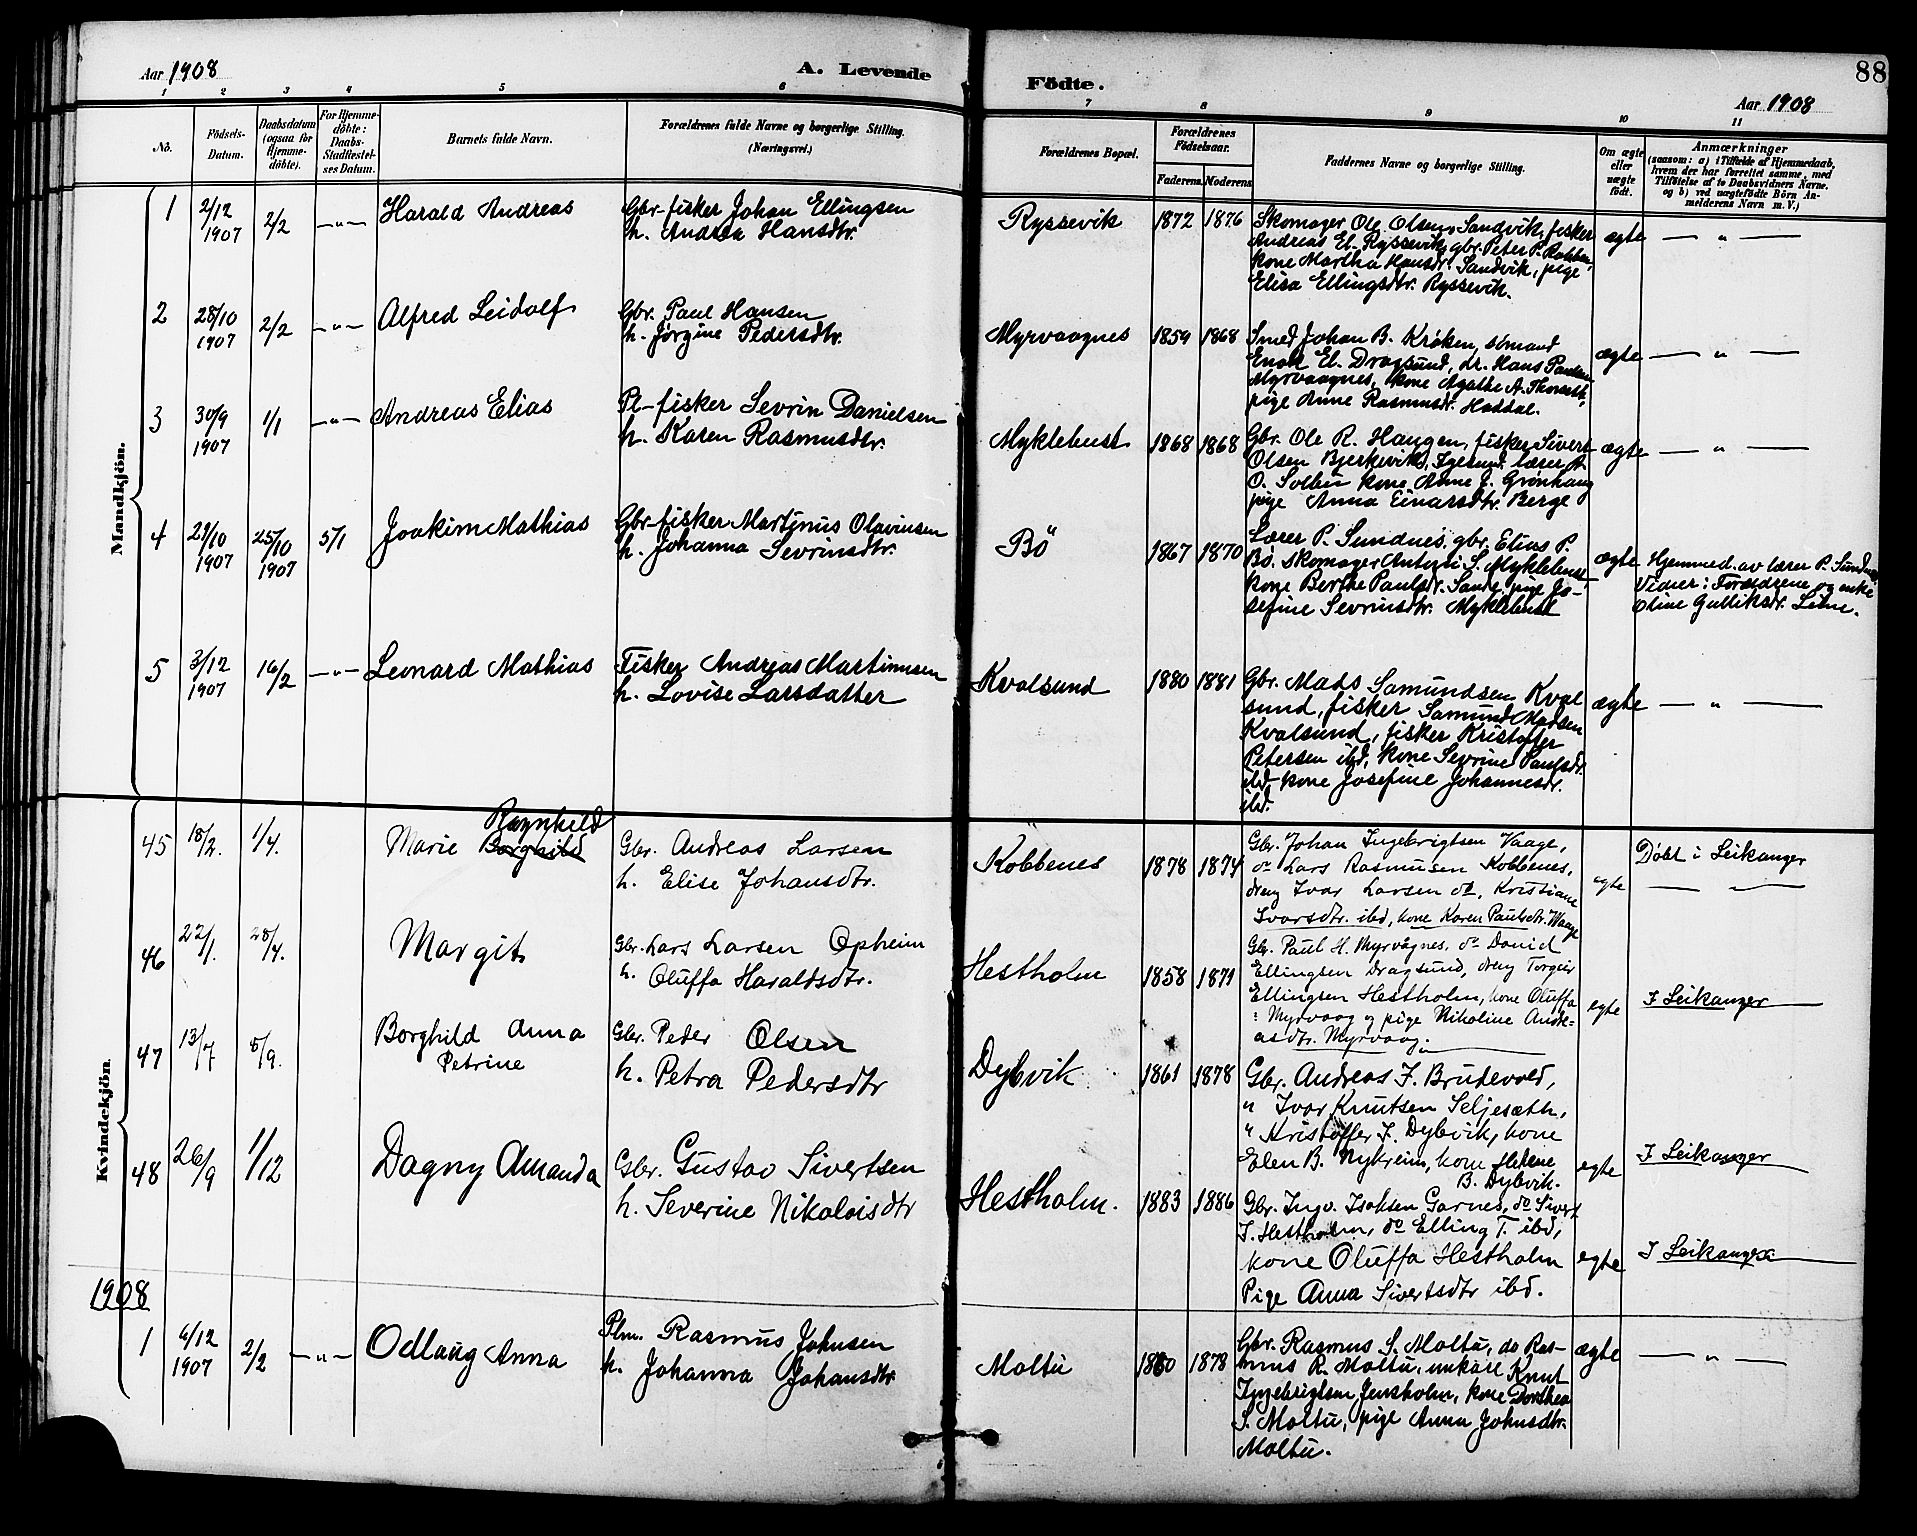 Aar 1908
A. Levende
Födte.
88
Aar 1908
1 2 3 4 5 6 7 8 9 10 11
No.
Födsels-
Datum.
Daabsdatum
(ogsaa for
Hjemme-
döbte).
For Hjemme-
döbte:
Daabs-
Stadfæstel-
ses Datum.
Barnets fulde Navn.
Forældrenes fulde Navne og borgerlige Stilling.
(Næringsvei.)
Forældrenes Bopæl.
Forældrenes
Födselsaar.
Faderens. Moderens.
Faddernes Navne og borgerlige Stilling.
Om ægte
eller
uægte
födt.
Anmærkninger
(saasom: a) i Tilfælde af Hjemmedaab,
hvem der har forrettet samme, med
Tilföielse af to Daabsvidners Navne,
og b) ved uægtefödte Börn An-
melderens Navn m. V.)
Mandkjön.
1 2/12 1907 2/2 —"— Harald Andreas
Gbr-fisker Johan Ellingsen
h. Andrea Hansdtr.
Ryssevik 1872 1876
Skomager Ole Olsen Sandvik, fisker
Andreas El. Ryssevik, gbr. Peter P.
kone Martha Hansdr. Sandvik, pige
Elisa Ellingsdtr. Ryssevik.
ægte — " —
2 28/10 1907 2/2 —"— Alfred Leidolf
Gbr. Paul Hansen
h. Jørgine Pedersdtr.
Myrvaagnes 1859 1868
Smed Johan B. Krøken, sømand
Enok El. Dragsund, dr. Hans Paulsen
Myrvaagnes, kone Agathe A.
pige Anne Rasmusdr. Haddal.
ægte — " —
3 30/9 1907 1/1 —"— Andreas Elias
Pl-fisker Sevrin Danielsen
h. Karen Rasmusdtr.
Myklebust 1868 1868
Gbr. Ole R. Haugen, fisker Sivert
Olsen Bjerkevik, Igesund. lærer A.
O. kone Anne J. Grønhaug
pige Anna Einarsdtr. Berge
ægte — " —
4 29/10 1907 25/10 1907 5/1 Joakim Mathias
Gbr-fisker Martinus Olavinsen
h. Johanna Sevrinsdtr.
Bö 1867 1870
Lærer P. Sundnes, gbr. Elias P.
Bø. skomager Antoni S. Myklebust
kone Berthe Paulsdr. Sande, pige Jo-
sefine Sevrinsdtr. Myklebust
ægte
Hjemmed. av lærer P. Sundnes
Vidner: Forældrene og enke
Oline Gulliksdr. Leine.
5 3/12 1907 16/2 —"— Leonard Mathias
Fisker Andreas Martinusen
h. Lovise Larsdatter
Kvalsund 1880 1881
Gbr. Mads Samundsen Kval
sund, fisker Samund Madsen
Kvalsund, fisker Kristoffer
Petersen ibd, kone Sevrine Paulsdr.
ibd kone Josefine Johannesdr.
ibd.
ægte — " —
Kvindekjön
45 18/2. 1/4. Marie Borghild Ragnhild
Gbr. Andreas Larsen
h. Elise Johansdtr.
Kobbenes 1878 1874
Gbr. Johan Ingebrigtsen Vaage,
do Lars Rasmusen Kobbenes,
dreng Ivar Larsen do, Kristiane
Ivarsdtr. ibd, kone Karen Paulsdtr. Vaage
egte
Døbt i Leikanger
46 22/1. 28/4. Margit
Gbr. Lars Larsen Opheim
h. Oluffa Haraldsdtr.
Hestholm 1858 1871
Gbr. Paul H. Myrvågnes, do David
Ellingsen Dragsund, dreng Torgeir
Ellingsen Hestholm, kone Oluffa
: Myrvaag og pige Nikoline Andre-
asdtr. Myrvaag.
egte
I Leikanger
47 13/7 5/9. Borghild Anna
Petrine
Gbr. Peder Olsen
h. Petra Pedersdtr
Dybvik 1861 1878
Gbr. Andreas J. Brudevold,
" Ivar Knutsen Seljesæth,
" Kristoffer J. Dybvik, kone
Elen B. Nykreim, kone Helene
B. Dybvik.
egte
I Leikanger
48 26/9 1/12 Dagny Amanda
Gbr. Gustav Sivertsen
h. Severine Nikolaisdtr
Hestholm. 1883 1886
Gbr. Ingv. Isaksen Garnes, do Sivert
J. Hestholm, do Elling T. ibd,
kone Oluffa Hestholm
Pige Anna Sivertsdtr ibd.
egte
I Leikanger
1908
1 6/12 1907 2/2 —"— Odlaug Anna
Plm. Rasmus Johnsen
h. Johanna Johansdtr.
Moltu 1880 1878
Gbr. Rasmus S. Moltu, do Ras-
mus R. Moltu, unkarl Knut
Ingebrigtsen Jensholm, kone Dorthea
S. Moltu, pige Anna Johnsdtr.
Moltu.
ægte — " —